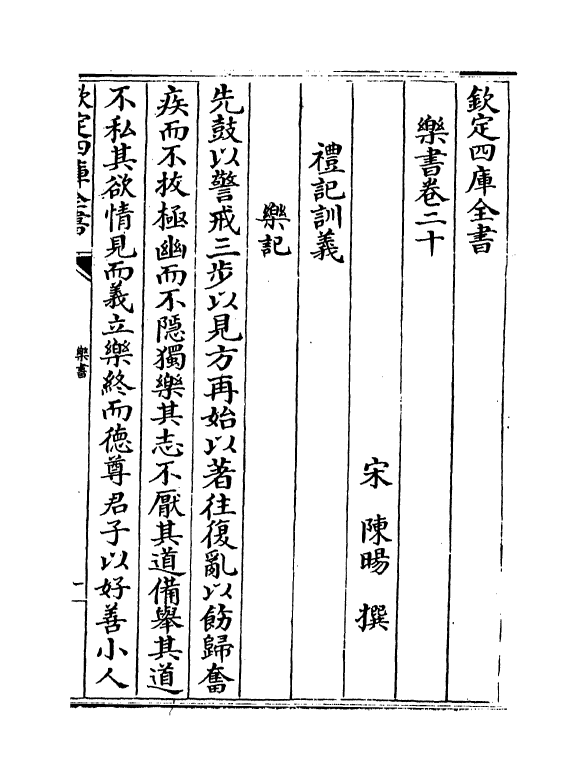 欽定四庫全書
樂書卷二十
宋 陳暘 撰
禮記訓義
樂記
先鼓以警戒三步以見方再始以著往復亂以飭歸奮
疾而不拔極幽而不隱獨樂其志不厭其道備舉其道
不私其欲情見而義立樂終而德尊君子以好善小人
欽定四庫全書
樂書
一